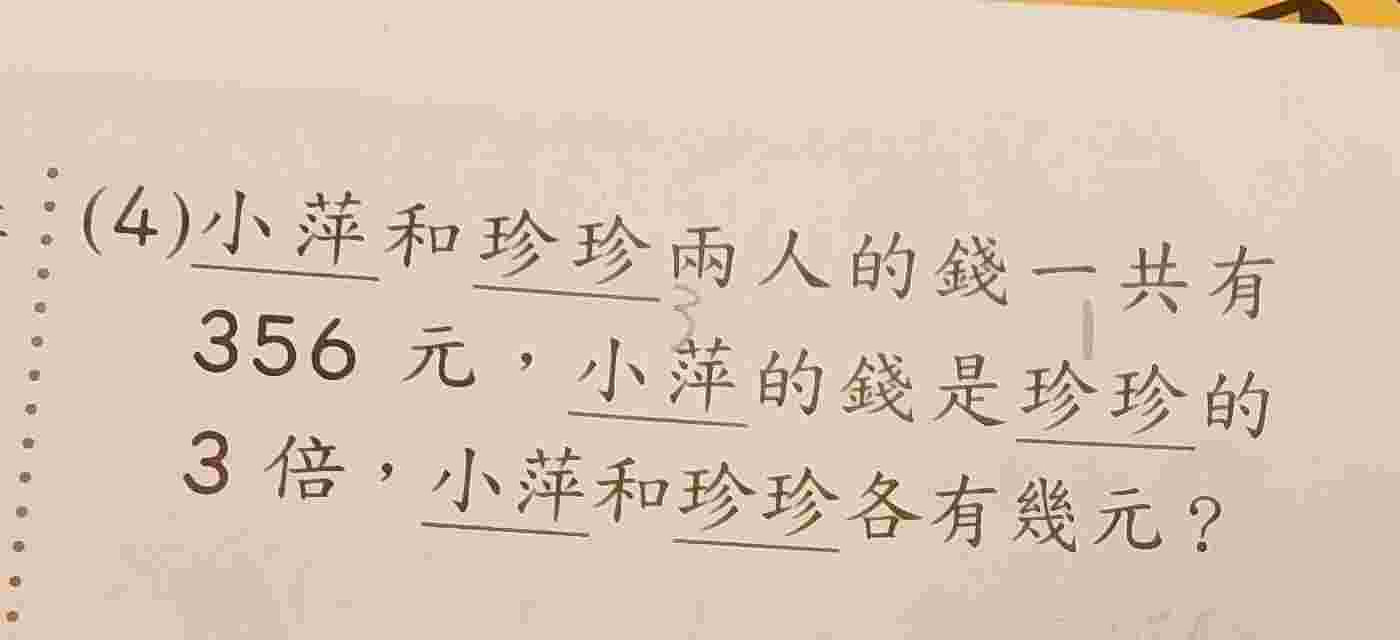 (4)小萍和珍珍兩人的錢一共有
356 元，小萍的錢是珍珍的
3 倍，小萍和珍珍各有幾元？
3
1